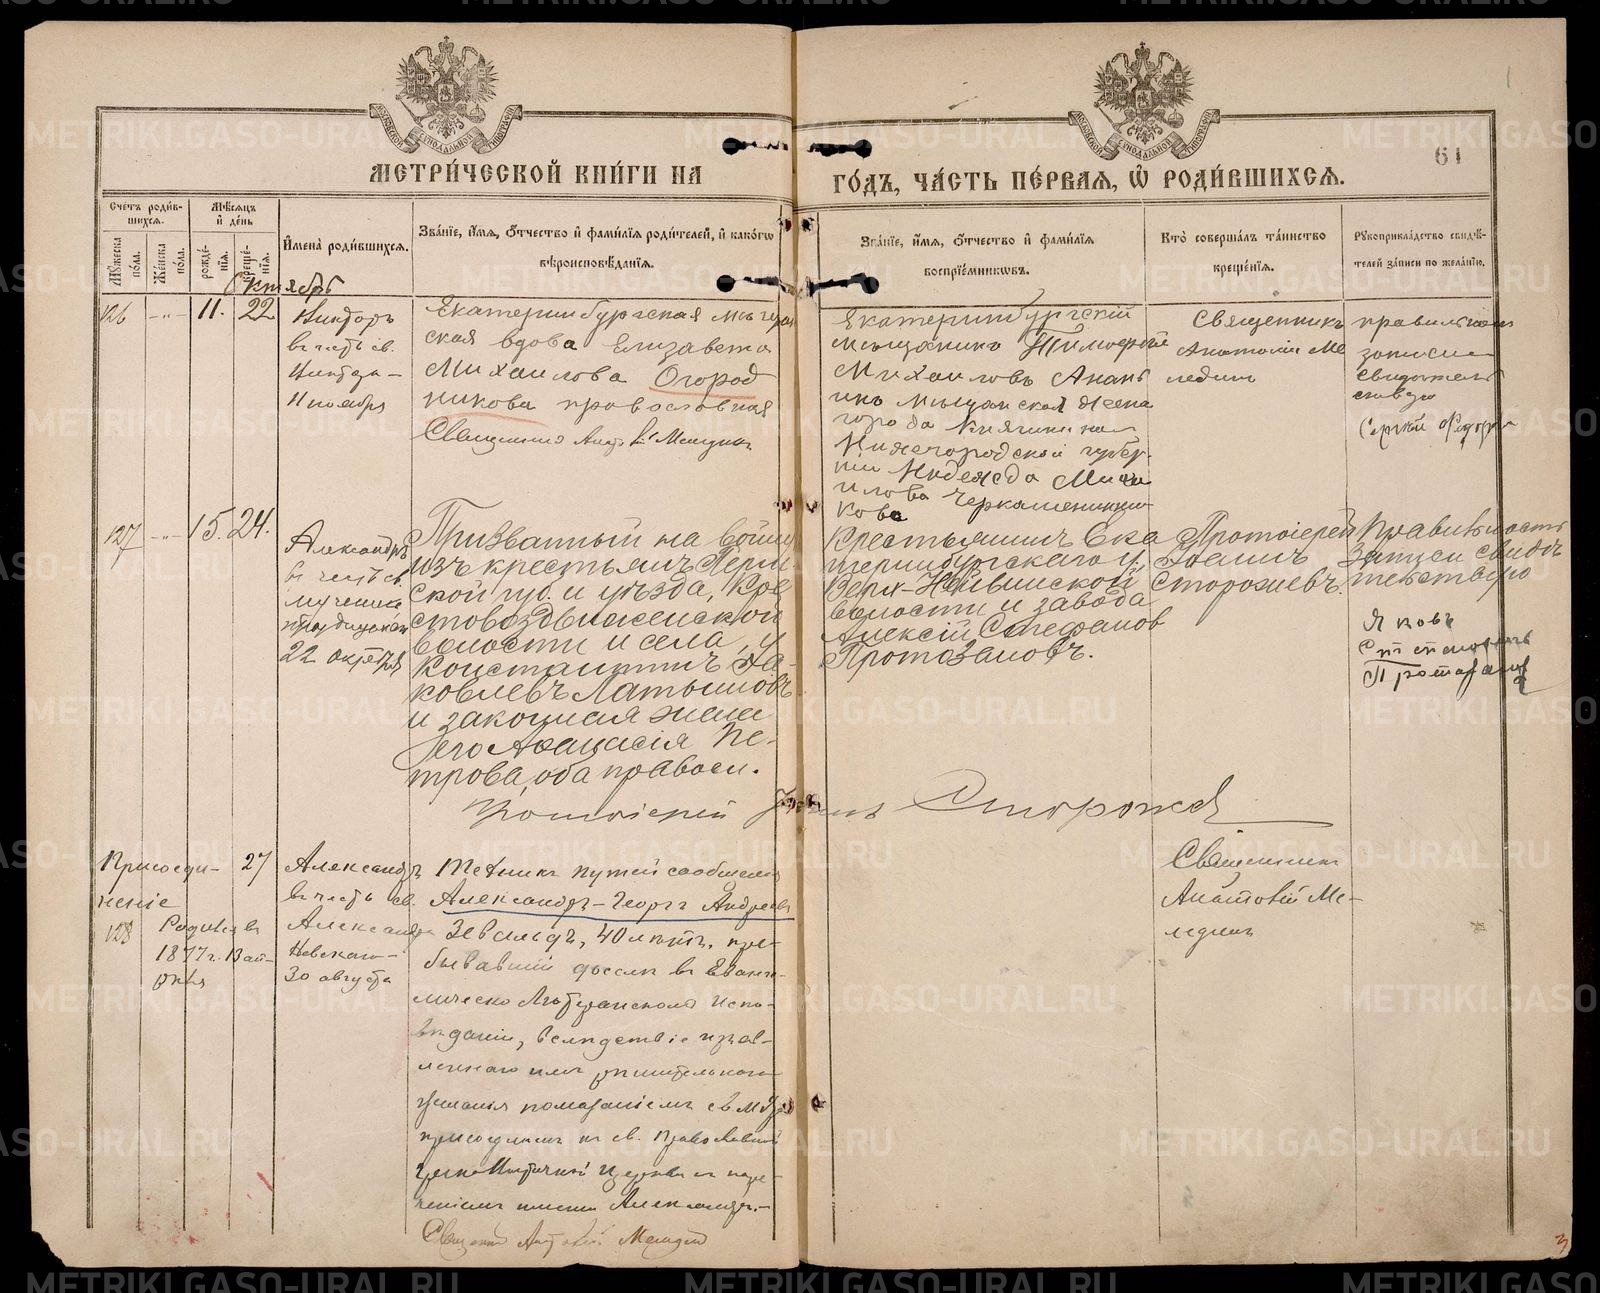 МЕТРИ́ЧЕСКОЙ КНИ́ГИ НА
ГО́ДЪ, ЧА́СТЬ ПЕ́РВАЯ, Ѡ РОДИ́ВШИХСЯ.
61
Сче́тъ роди́в-
шихся.
Мѣ́сяцъ
и҆ де́нь
Мꙋ́жеска по́ла.
Же́нска по́ла.
рожде́-
нїя.
креще́-
нїя.
И҆мена̀ роди́вшихся.
Зва́нїе, и҆́мя, ѻ҆́тчество и҆ фами́лїя роди́телей, и҆ како́гѡ
вѣроисповѣ́данїя.
Зва́нїе, и҆́мя, ѻ҆́тчество и҆ фами́лїя
воспрїе́мникѡвъ.
Кто̀ соверша́лъ та́инство
креще́нїя.
Рꙋкоприкла́дство свидѣ́-
телей за́писи по жела́нїю.
Октябрь
126
-"-
11.
22
Викторъ
въ честь св.
Виктора –
11 ноября
Екатеринбургская мѣщан
ская вдова Елизавета
Михаилова Огород
никова православная
Священникъ Анатолій Мелединъ
Екатеринбургскій
мѣщанинъ Тимофей
Михаиловъ Анань
инъ мѣщанская жена
города Княгинина
Нижегородской губер
ніи Надежда Миха
илова
Священникъ
Анатолій Ме
лединъ
правильность
записи
свидѣтель
ствую
Сергѣй
127
-"-
15.
24.
Александръ
въ честь св.
мученика
празднуемаго
22 октября
Призванный на войну
изъ крестьянъ Перм
ской губ. и уѣзда, Кре
стовоздвиженской
волости и села,
Константинъ Яковлевъ
Латышовъ
и законная жена
его Афанасія Пе-
трова, оба правосл.
Протоіерей Іоаннъ Сторожевъ
Крестьянинъ Ека
теринбургскаго у.,
Верх-Нейвинской
волости и завода
Алексій Стефанов
Протозановъ.
Протоіерей
Іоаннъ
Сторожевъ.
Правильность
записи свидѣ
тельствую
Яковъ
Присоеди-
неніе
128
Родился въ
1877 г. 13
27
Александръ
въ честь св.
Александра
Невскаго –
30 августа
Техникъ путей сообщенія
Александръ-Георгъ Андреевъ
Зевальдъ, 40 лѣтъ, пре-
бывавшій доселѣ въ Еванге-
лическо Лютеранскомъ испо-
вѣданіи, вслѣдствіе изъяв-
леннаго имъ рѣшительнаго
желанія помазаніемъ св. Мѵра
присоединенъ къ св. Православной
Церкви съ наре-
ченіемъ имени Александръ. –
Священникъ Анатолій Меледин
Священникъ
Анатолій Ме-
лединъ
METRIKI.GASO-URAL.RU